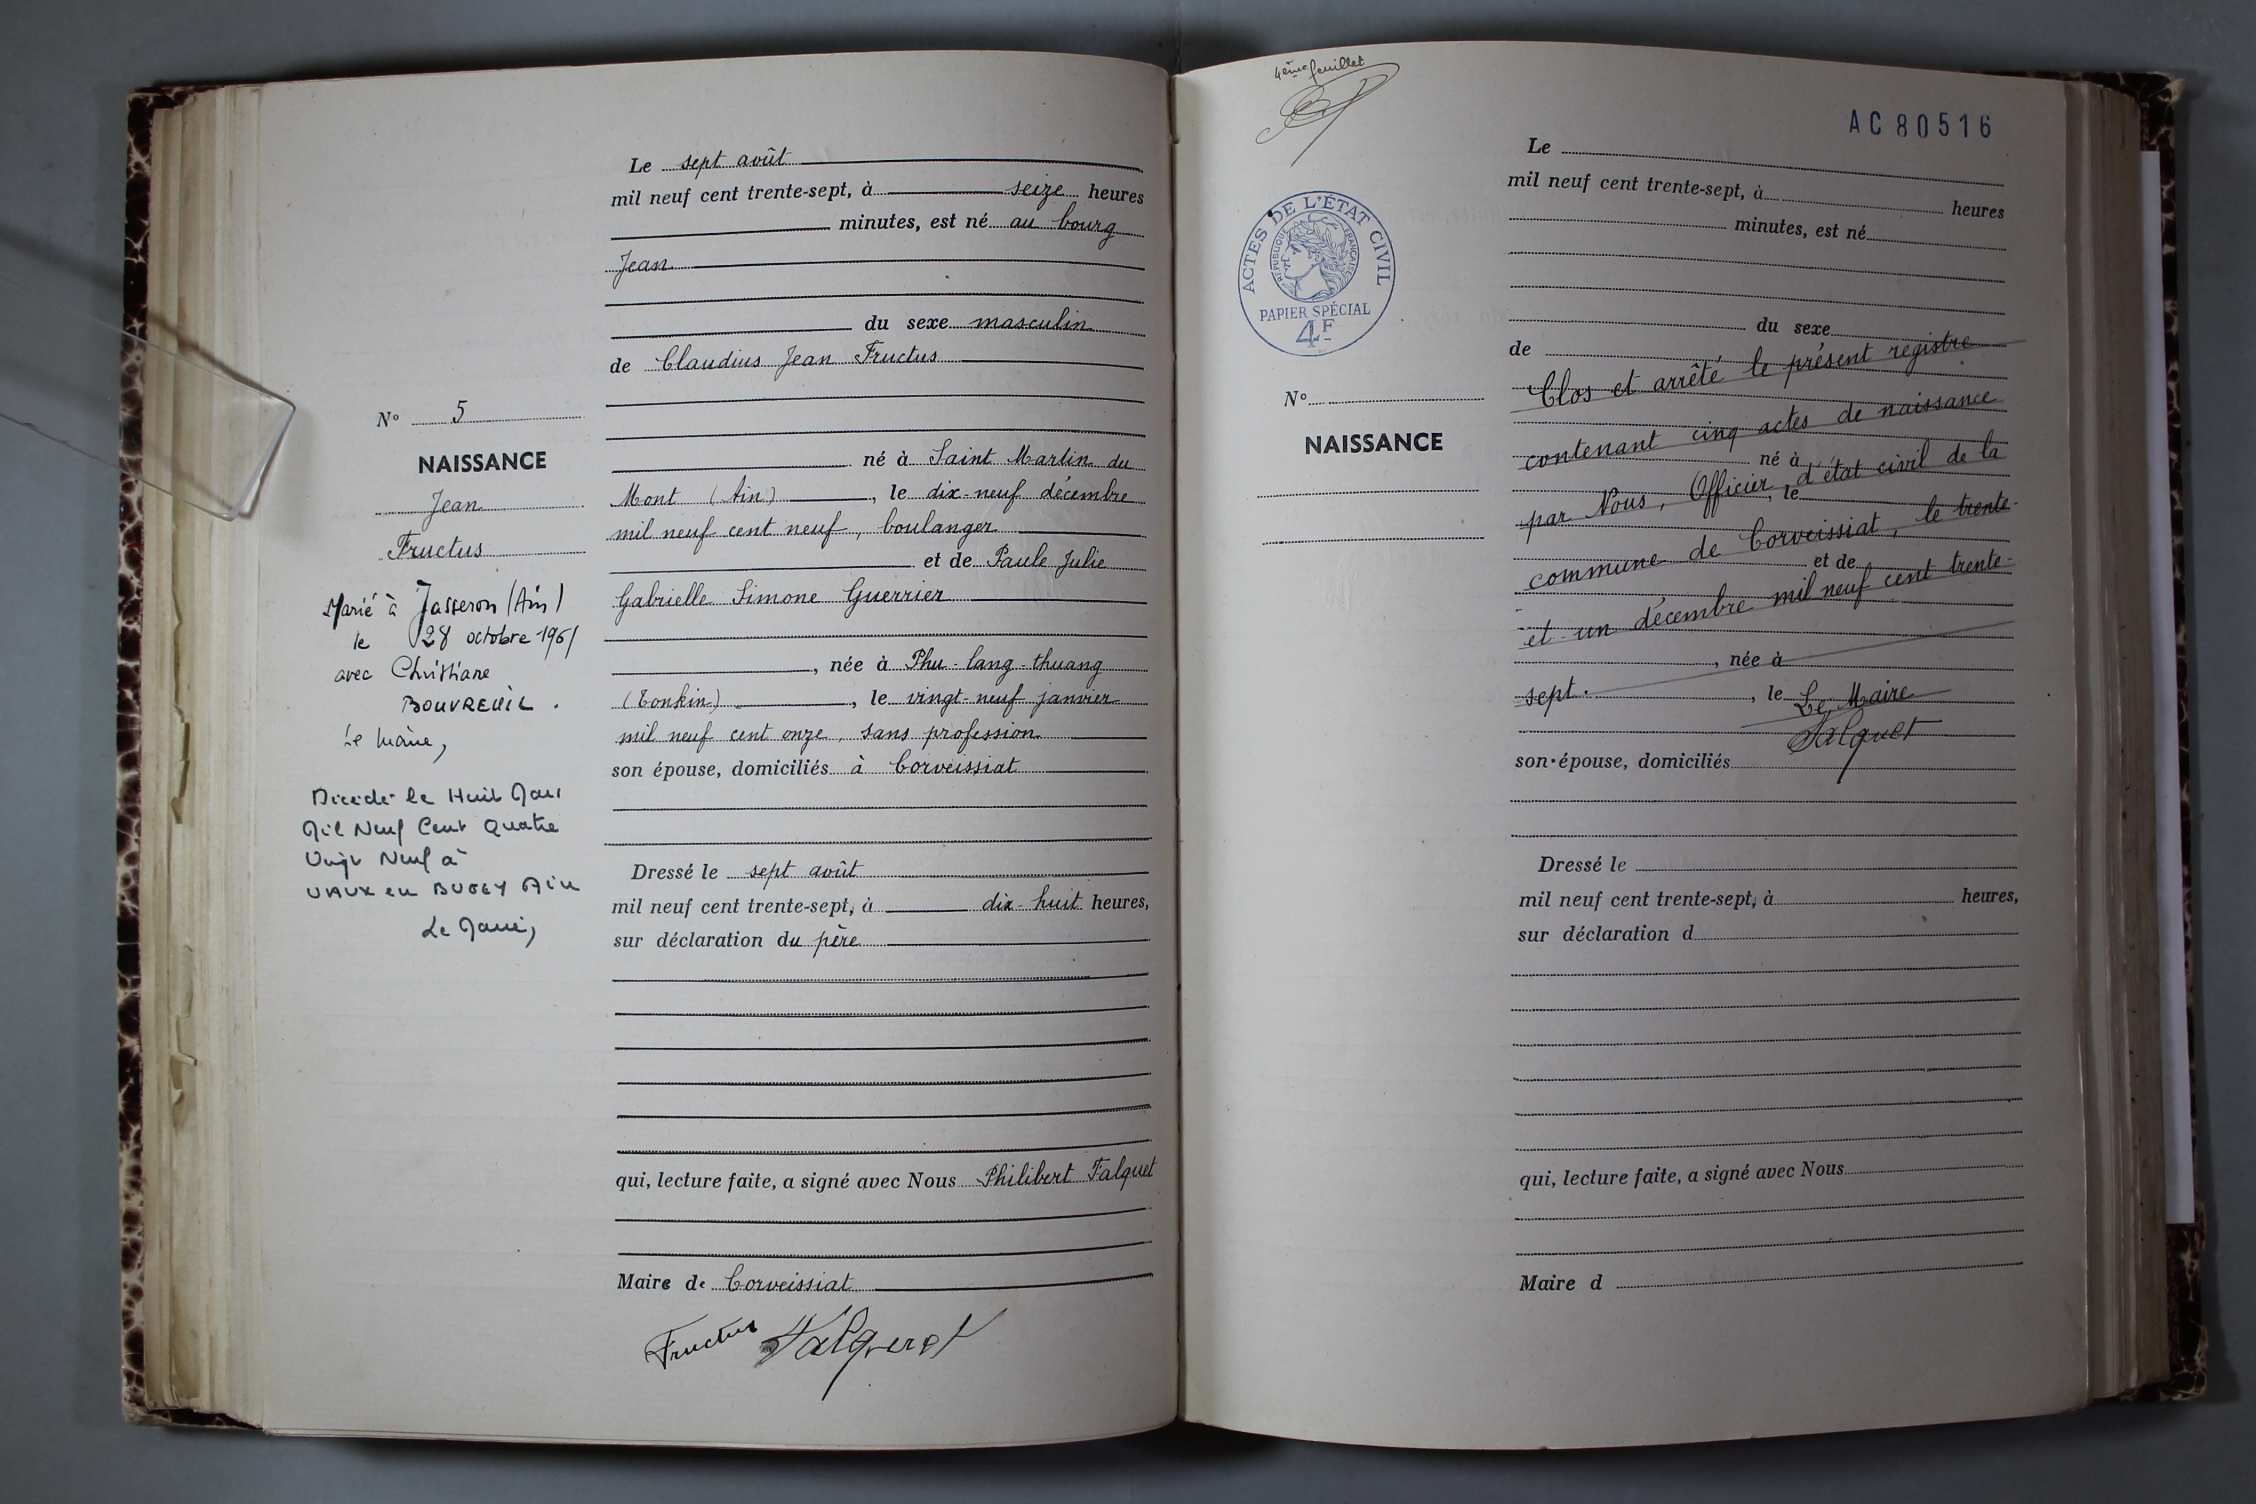 Le sept août
mil neuf cent trente-sept, à seize heures
minutes, est né au bourg
Jean
du sexe masculin
de Claudius Jean Fructus
né à Saint Martin du
Mont (Ain), le dix-neuf décembre
mil neuf cent neuf, boulanger
et de Paule Julie
Gabrielle Simone Guerrier
, née à Phu-lang-thuang
(Tonkin), le vingt-neuf janvier
mil neuf cent onze, sans profession
son épouse, domiciliés à Corveissiat
Dressé le sept août
mil neuf cent trente-sept, à dix-huit heures,
sur déclaration du père
qui, lecture faite, a signé avec Nous Philibert Falquet
Maire de Corveissiat
Fructus Falquet
No 5
NAISSANCE
Jean
Fructus
Marié à Jasseron (Ain)
le 28 octobre 1961
avec Christiane
BOUVREUIL.
Le Maire,
Décédé le Huit Mai
Mil Neuf Cent Quatre
Vingt Neuf à
VAUX en BUGEY Ain
Le Maire,
4ème feuillet
AC 80516
ACTES DE L'ÉTAT CIVIL
RÉPUBLIQUE FRANÇAISE
PAPIER SPÉCIAL
4F
No
NAISSANCE
Le
mil neuf cent trente-sept, à heures
minutes, est né
du sexe
de
Clos et arrêté le présent registre
contenant cinq actes de naissance
né à
par Nous, Officier d'état civil de la
, le
commune de Corveissiat, le trente-
et de
et-un décembre mil neuf cent trente-
, née à
sept.
, le
Le Maire
Falquet
son épouse, domiciliés
Dressé le
mil neuf cent trente-sept, à heures,
sur déclaration d
qui, lecture faite, a signé avec Nous
Maire d